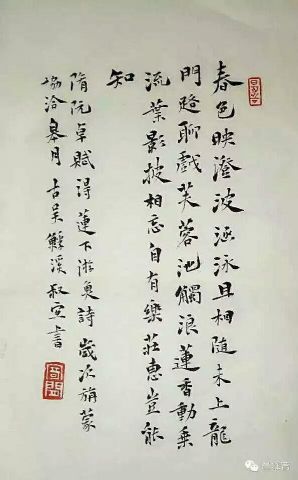 春色映澄波涵泳且相隨未上龍
門路聊戲芙蓉池觸浪蓮香動乗
流葉影披相忘自有樂莊惠豈能
知
隋阮卓賦得蓮下游魚詩歲次旃蒙
協洽皋月古吴溪叔宣書